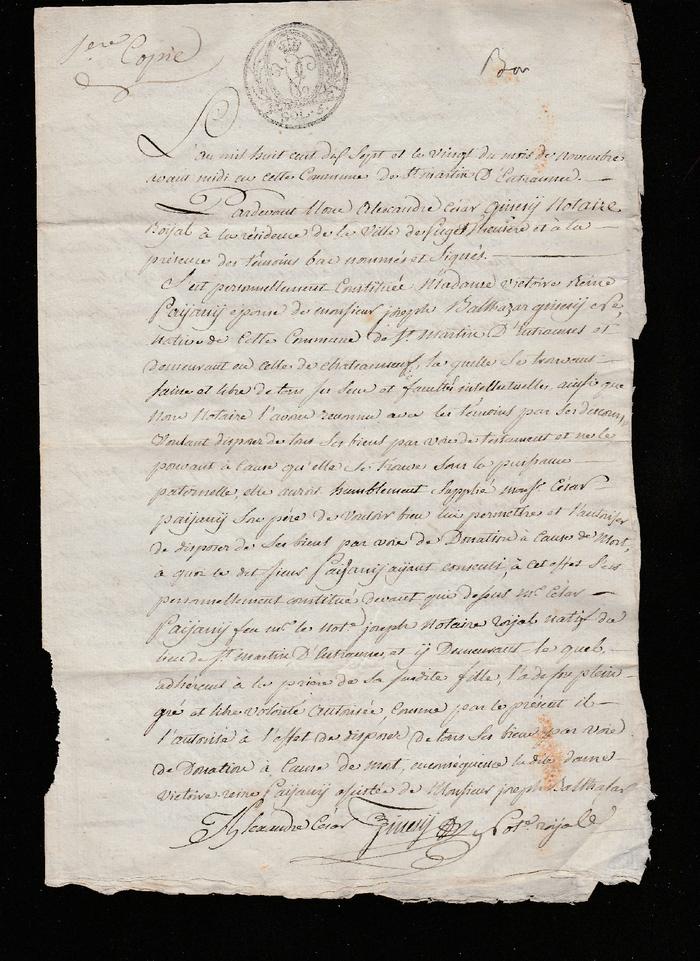 1.ere Copie
SOL. 5.
Bon
L'an mil huit cent dix Sept et le vingt du mois de Novembre
avant midi en cette Commune de St. martin D'Entraunes. —
Pardevant Nous Alexandre César Ginesÿ Notaire
Roÿal à la résidence de la Ville de Puget Theniers et à la —
présence des témoins bas nommés et Signés. —
S'est personnellement Constituée Madame Victoire Reine
Païjanÿ épouse de monsieur joseph Balthazar ginesÿ
native de Cette Commune de St. Martin D'Entraunes et
demeurant en celle de chateauneuf, la quelle Se trouvant
Saine et libre de tous ses Sens et facultés intellectuelles, ainsi que
Nous Notaire l'avons reconnu avec les témoins par Ses discours,
Voulant disposer de tous Ses biens par voie de testament et ne le
pouvant à Cause qu'elle Se trouve Sous la puissance —
paternelle, elle auroit humblement Supplié monsr. César
païjanÿ Son père de Vouloir bien lui permettre et l'autoriser
de disposer de Ses biens par voie de Donation à Cause de Mort,
à quoi le dit Sieur Païjanÿ aÿant consenti, à cet effet S'est
personnellement constitué devant que dessus mr. César —
Païjanÿ feu mr. le Note. joseph Notaire roÿal natif du
lieu de St. Martin D'Entraunes, et ÿ Demeurant le quel, —
adhérent à la prière de Sa susdite fille, l'a de son plein —
gré et libre Volonté Autorisée, Comme par le présent il —
l'autorise à l'effet de disposer de tous Ses biens par voie
de Donation à Cause de mort, en conséquence la dite dame
Victoire reine Païjanÿ assistée de Monsieur joseph Balthazar
Alexandre César Ginesÿ Note. roÿal